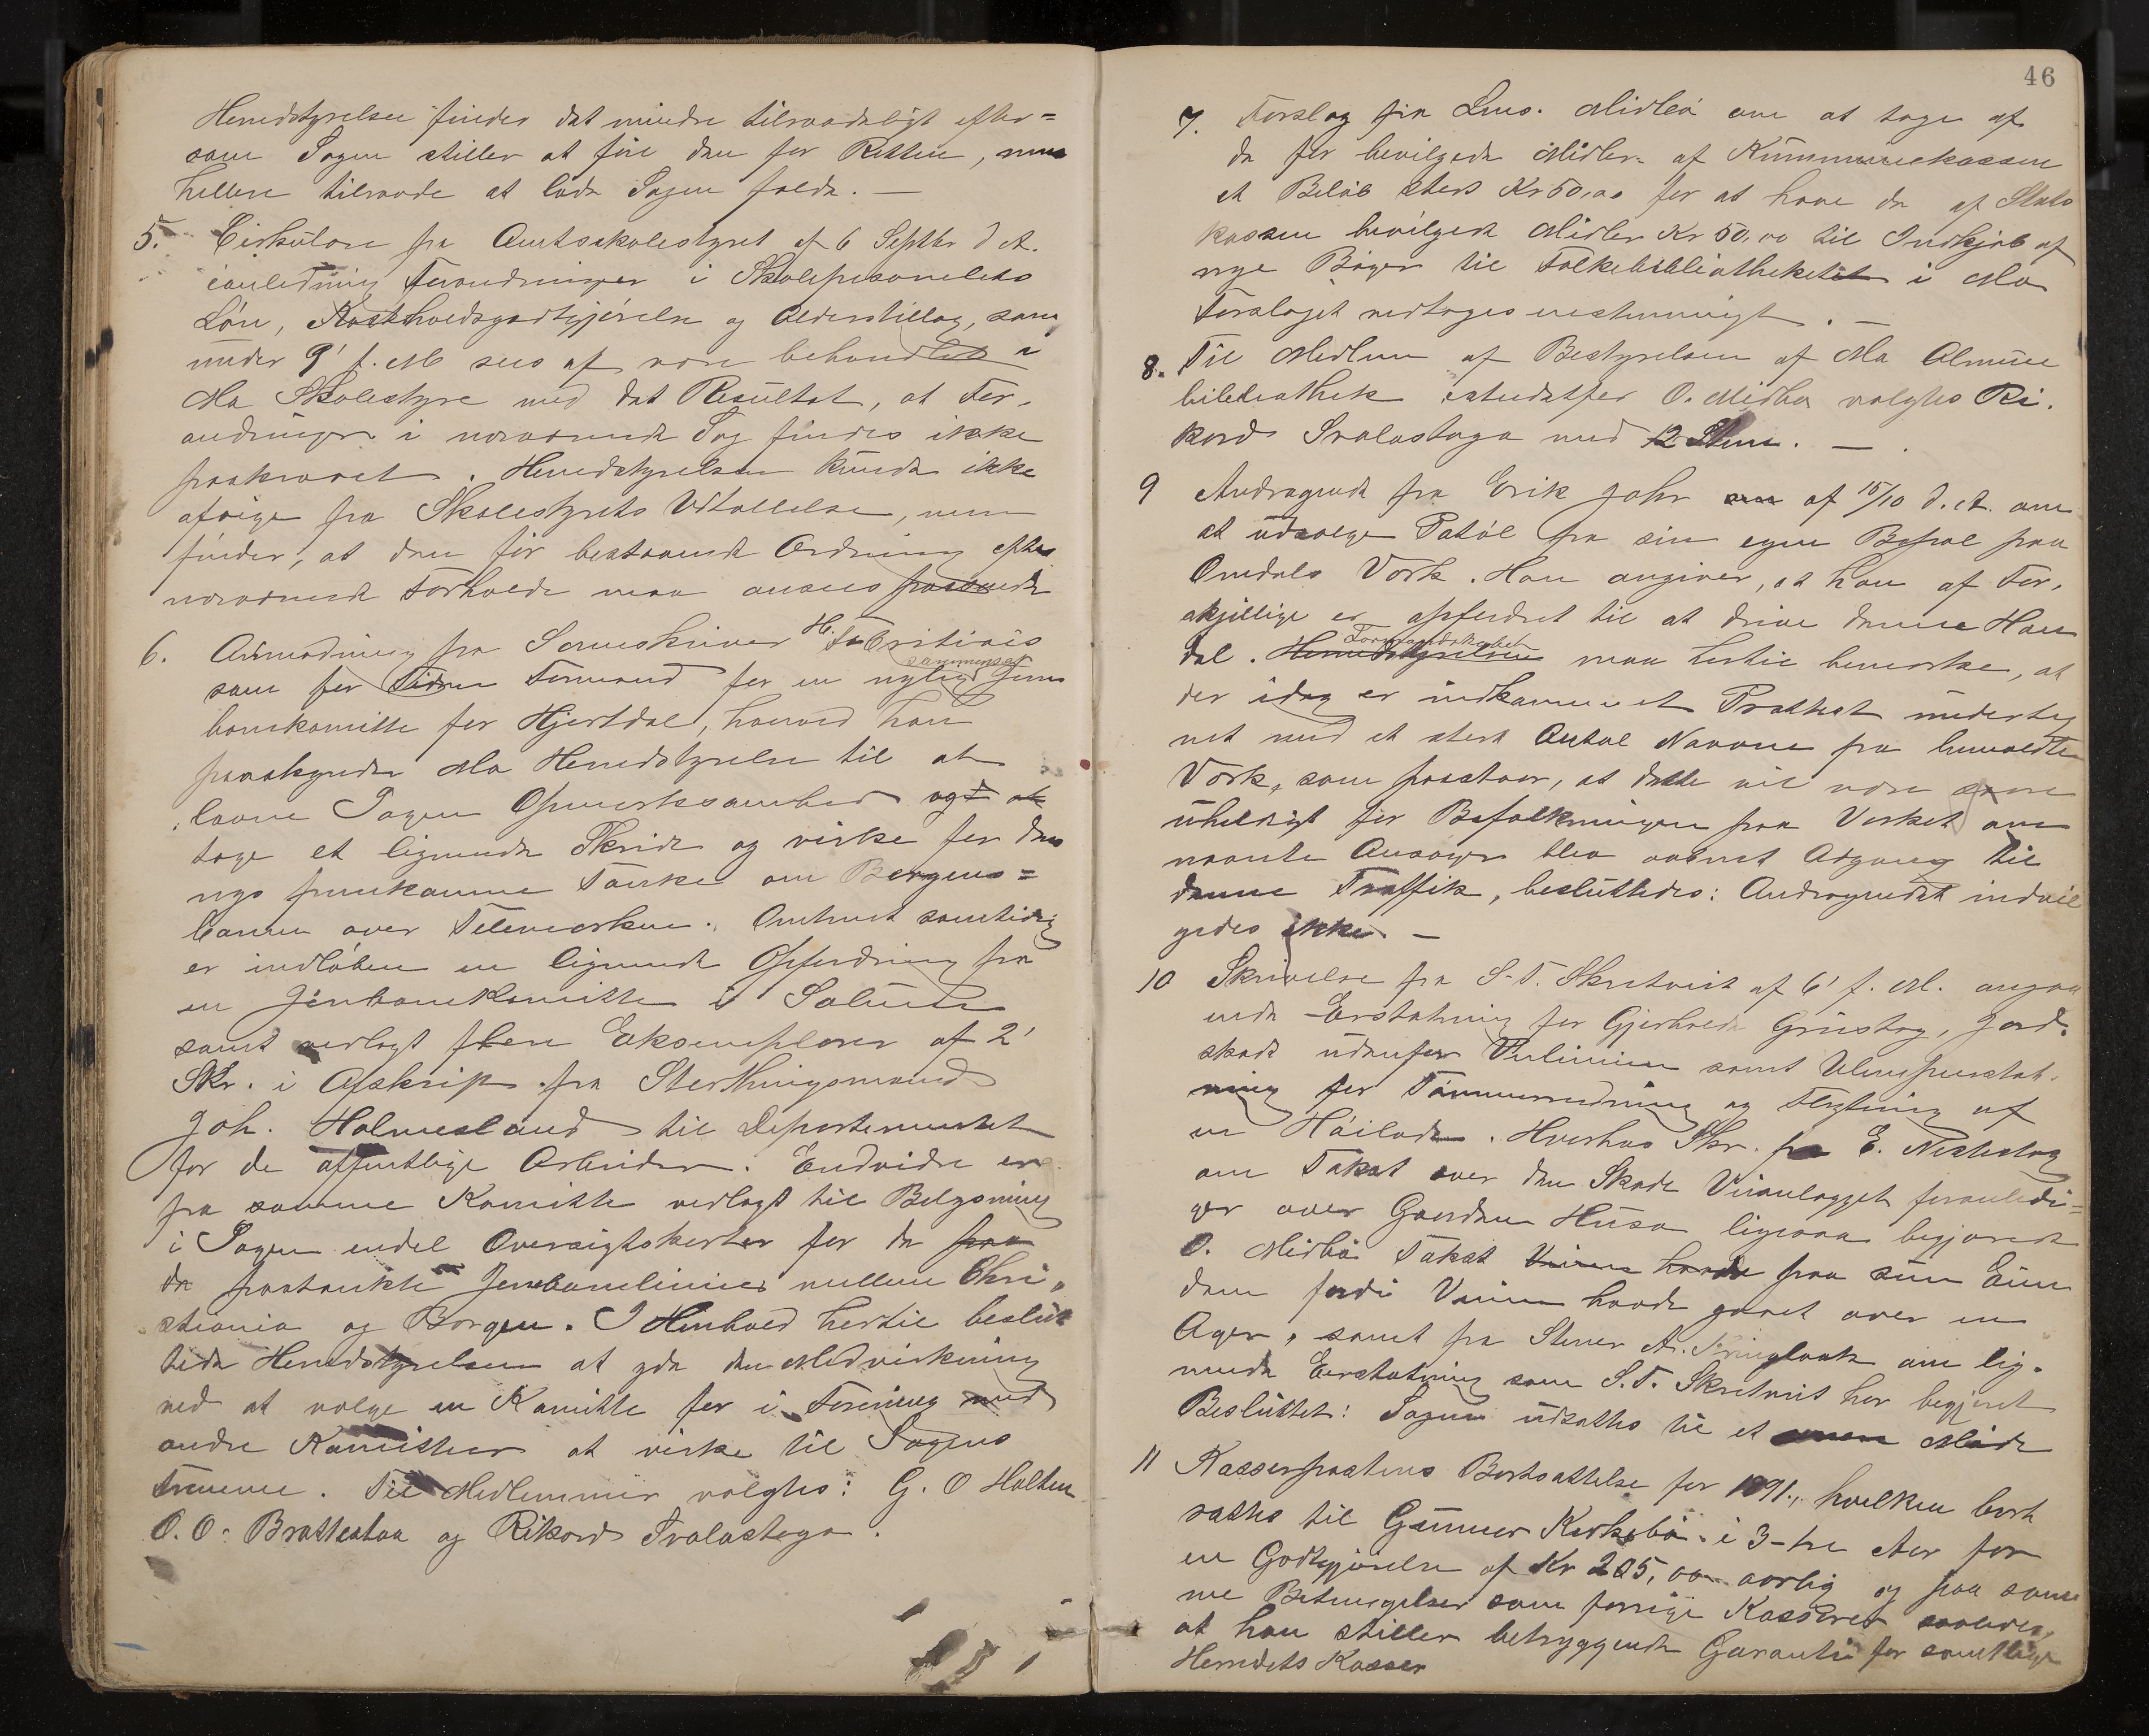 Herredstyrelsen finder det mindre tilraadeligt efter=
som Sagen stiller at føre den for Retten, men
hellere tilraade at lade Sagen falde. —
5. Cirkulære fra Amtsskolestyret af 6 Septbr d. A.
ianledning Forandringer i Skolepersonalets
Løn, Kosthholdsgodtgjørelse og Alderstillæg, som
under 9' f. M sees af være behandlet i
Mo Skolestyre med det Resultat, at For-
andringer i nærværende Sag findes ikke
paakrævet. Herredstyrelsen kunde ikke
afvige fra Skolestyrets Udtallelse, men
finder, at den før bestaaende Ordning efter
nærværende Forholde maa ansees passende
6. Anmodning fra Sorenskriver H. Fabritius
som for Tiden Formand for en nylig sammensat Jern
banekomitte for Hjertdal, hvorved han
paaskynder Mo Herredstyrelse til at
lavne Sagen Opmerksomhed og at
tage et lignende Skridt og virke for den
nys fremkomne Tanke om Bergens=
banen over Telemarken. Omtrent samtidig
er indløben en lignende Opfordring fra
en Jernbanekomitte i Solum
samt vedlagt flere Eksemplarer af 2'
Skr. i Afskrift fra Storthingsmand
Joh. Holmesland til Departementet
for de offentlige Arbeider. Endvidre er
fra samme Komitte vedlagt til Belysning
i Sagen endel Oversigtskarter for de paa
de paatænkte Jernbanelinier mellem Chri-
stiania og Bergen. I Henhold hertil beslut
tede Herredstyrelsen at yde den Medvirkning
ved at vælge en Komitte for i Forening med
andre Komitteer at virke til Sagens
Fremme. Til Medlemmer valgtes: G. O Holten
O. O. Brattestaa og Rikard Svalastoga.
46
7. Forslag fra Lens. Midbø om at tage af
de før bevilgede Midler af Kommunekassen
et Beløb stort Kr 50,00 for at have de af Stats
kassen bevilgede Midler Kr 50,00 til Indkjøb af
nye Bøger til Folkebibliotheket i Mo
Forslaget vedtoges enstemmigt. —
8. Til Medlem af Bestyrelsen af Mo Almue
bibliothek istedetfor O. Midbø valgtes Ri-
kard Svalastoga med 12 Stem. —
9 Andragende fra Erik Johr af 15/10 d. A. om
at udsælge Patøl fra sin egen Bopæl paa
Omdals Værk. Han angiver, at han af For-
skjellige er opfordret til at drive denne Han
del. Herredstyrelsen Formandskabet maa hertil bemærke, at
der idag er indkommet et Protest underteg
net med et stort Antal Navne fra bemeldte
Værk, som paastaar, at dette vil være
uheldigt for Befolkningen paa Verket om
nævnte Ansøger blev aabnet Adgang til
denne Traffik, besluttedes: Andragendet indvil
gedes ikke. —
10 Skrivelse fra S. T. Skretveit af 6' f. M. angaa
ende Erstatning for Gjerhold Grustag, Jord-
skade udenfor Veilinien samt Ulempeerstat-
ning for Tømmerdning og Flytning af
en Høilade. Hverhos Skr. fra E. Nestestog
om Takst over den Skade Veianlægget foranledi=
ger over Gaarden Huso ligesaa begjærede
O. Midbø Takst Veien havde paa sin Eien
dom fordi Veien havde gaaet over en
Ager, samt fra Stener A. om lig-
nende Erstatning som S. T. Skretveit har begjæret
Besluttet: Sagen udsattes til et Møde
11 Kasserpostens Bortsættelse for 1891, hvilken bort
sattes til Gunner Kirkebø i 3-tre Aar for
en Godtgjørelse af Kr 205,00 aarlig og paa sam
me Betingelser som forrige Kasserer saaledes
at han stiller betryggende Garanti for samtlige
Herredets Kasser